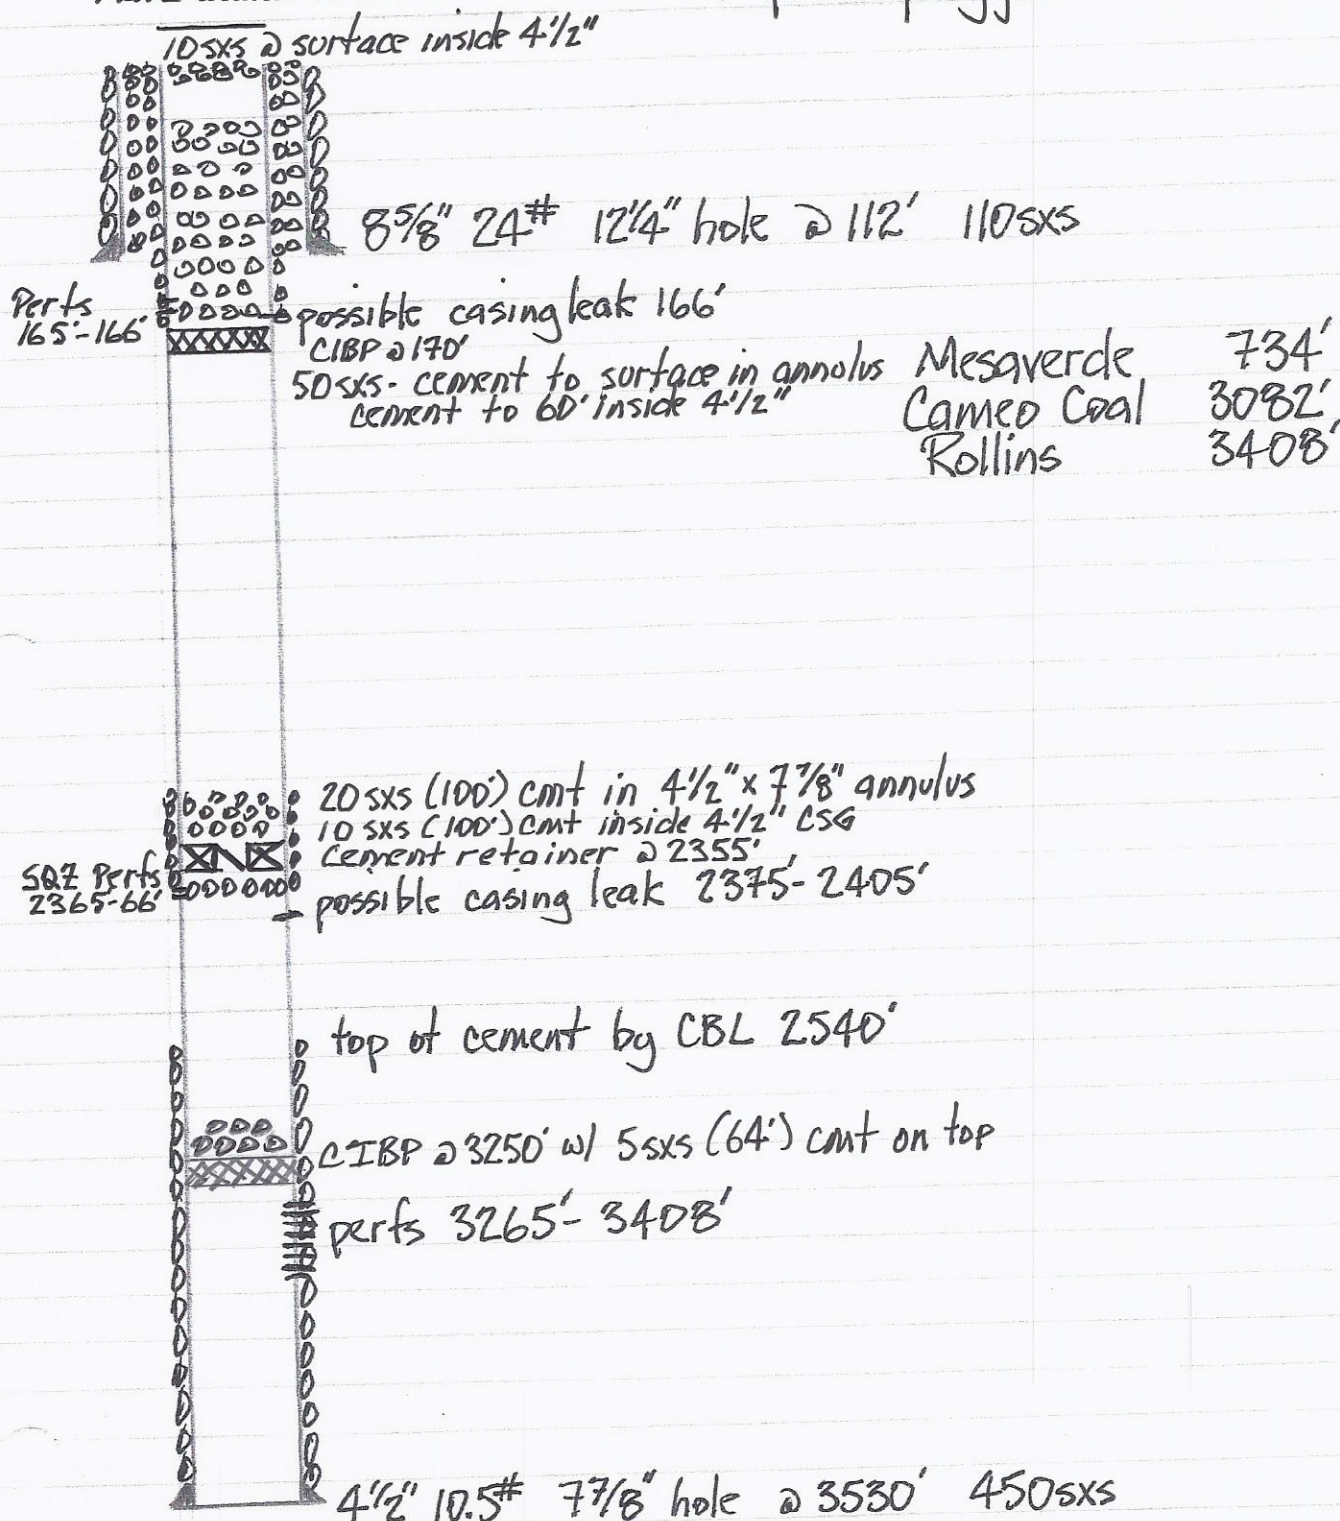 10 sxs @ surface inside 4 1/2"
8 5/8" 24# 12 1/4" hole @ 112' 110 sxs
Perfs
165'-166'
possible casing leak 166'
CIBP @ 170'
50 sxs - cement to surface in annolus
cement to 60' inside 4 1/2"
Mesaverde 734'
Cameo Coal 3082'
Rollins 3408'
20 sxs (100') cmt in 4 1/2" x 7 7/8" annulus
10 sxs (100') cmt inside 4 1/2" CSG
Cement retainer @ 2355'
SQZ Perfs
2365-66'
possible casing leak 2375'-2405'
top of cement by CBL 2540'
CIBP @ 3250' w/ 5 sxs (64') cmt on top
perfs 3265'-3408'
4 1/2" 10.5# 7 7/8" hole @ 3530' 450 sxs